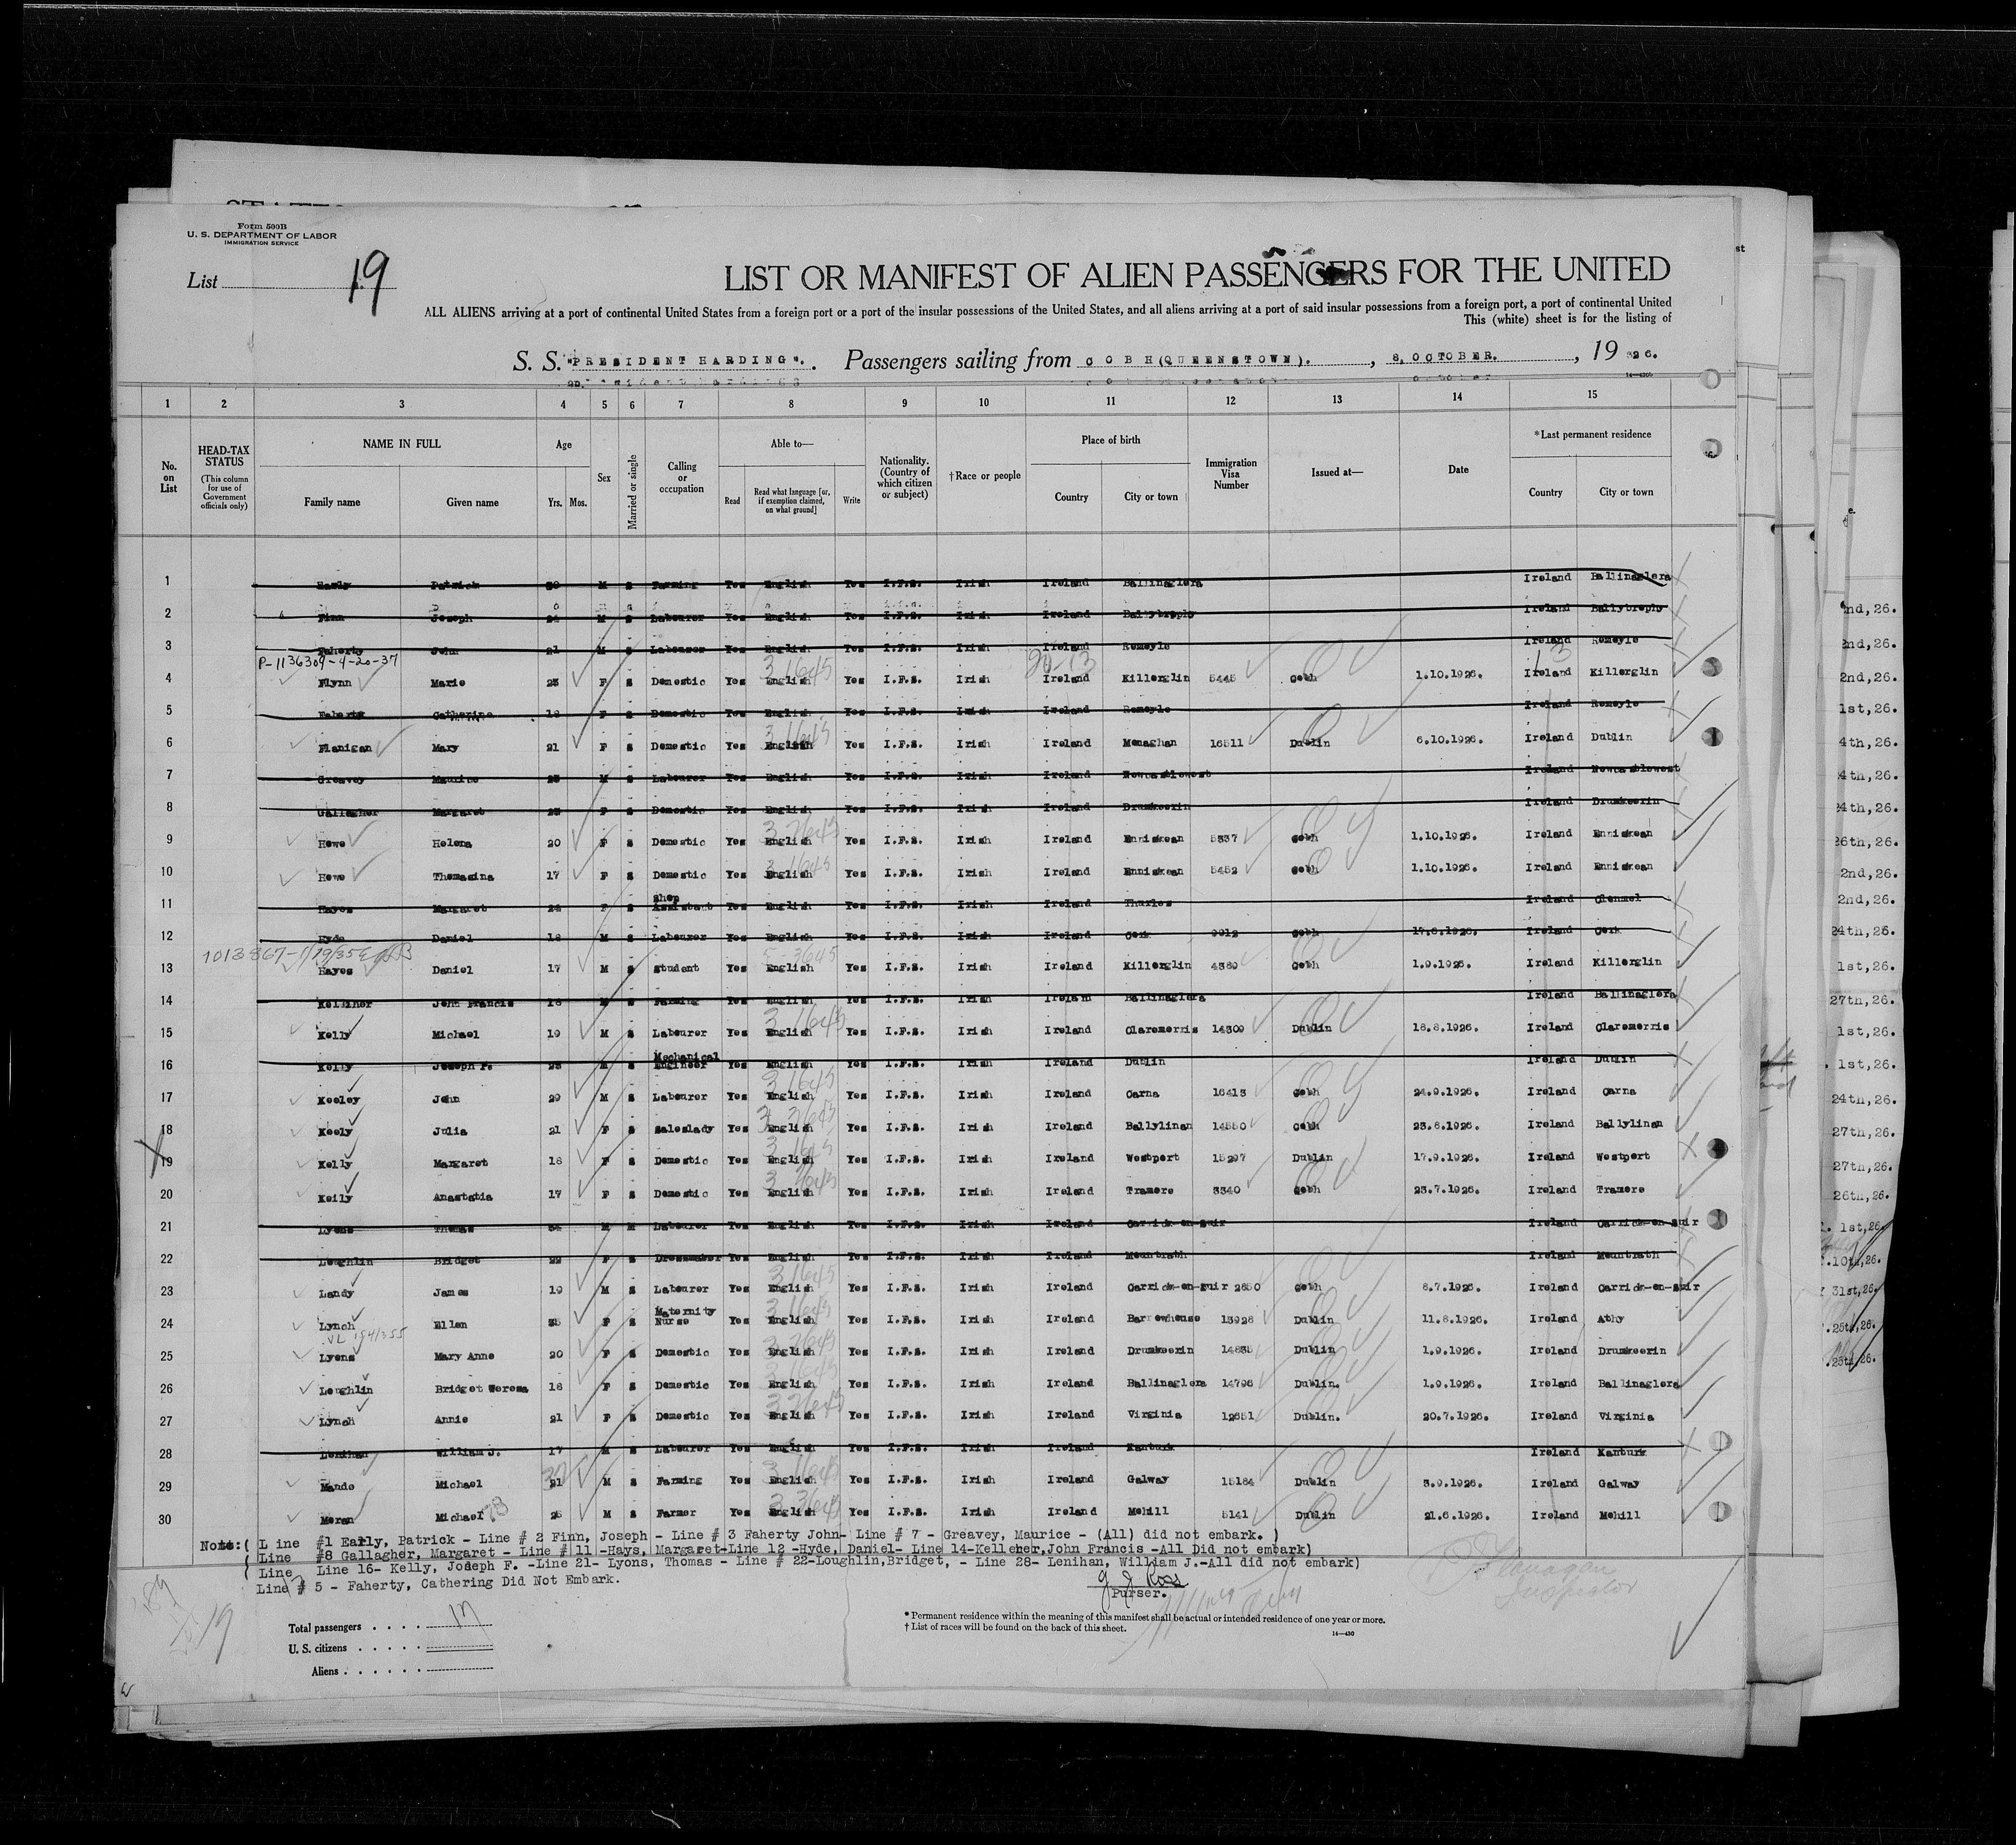 Form 500B
U. S. DEPARTMENT OF LABOR
IMMIGRATION SERVICE
List 19
LIST OR MANIFEST OF ALIEN PASSENGERS FOR THE UNITED
ALL ALIENS arriving at a port of continental United States from a foreign port or a port of the insular possessions of the United States, and all aliens arriving at a port of said insular possessions from a foreign port, a port of continental United
This (white) sheet is for the listing of
S. S. "PRESIDENT HARDING". Passengers sailing from COBH(QUEENSTOWN). , 8, OCTOBER. , 1926.
1 2 3 4 5 6 7 8 9 10 11 12 13 14 15
No. on List
HEAD-TAX STATUS (This column for use of Government officials only)
NAME IN FULL
Family name Given name
Age
Yrs. Mos.
Sex
Married or single
Calling or occupation
Able to—
Read Read what language [or, if exemption claimed, on what ground] Write
Nationality. (Country of which citizen or subject)
†Race or people
Place of birth
Country City or town
Immigration Visa Number
Issued at—
Date
*Last permanent residence
Country City or town
1 Early Patrick 30 M S Farming Yes English Yes I.F.S. Irish Ireland Ballinaglera Ireland Ballinaglera
2 Finn Joseph 24 M S Labourer Yes English Yes I.F.S. Irish Ireland Ballybrophy Ireland Ballybrophy
3 Faherty John 21 M S Labourer Yes English Yes I.F.S. Irish Ireland Remeyle Ireland Remeyle
P-1136309-4-20-37
4 Flynn Marie 23 F S Domestic Yes English Yes I.F.S. Irish Ireland Killerglin 5445 Cobh 1.10.1926. Ireland Killerglin
5 Faherty Catherine 18 F S Domestic Yes English Yes I.F.S. Irish Ireland Remeyle Ireland Remeyle
6 Flanigan Mary 21 F S Domestic Yes English Yes I.F.S. Irish Ireland Monaghan 16511 Dublin 6.10.1926. Ireland Dublin
7 Greavey Maurice 23 M S Labourer Yes English Yes I.F.S. Irish Ireland Newcastlewest Ireland Newcastlewest
8 Gallagher Margaret 23 F S Domestic Yes English Yes I.F.S. Irish Ireland Drumkeerin Ireland Drumkeerin
9 Howe Helena 20 F S Domestic Yes English Yes I.F.S. Irish Ireland Enniskean 5337 Cobh 1.10.1926. Ireland Enniskean
10 Howe Thomasina 17 F S Domestic Yes English Yes I.F.S. Irish Ireland Enniskean 5452 Cobh 1.10.1926. Ireland Enniskean
11 Hayes Margaret 24 F S Shop Assistant Yes English Yes I.F.S. Irish Ireland Thurles Ireland Clonmel
12 Hyde Daniel 18 M S Labourer Yes English Yes I.F.S. Irish Ireland Cork 9912 Cobh 17.6.1926. Ireland Cork
13 Hayes Daniel 17 M S Student Yes English Yes I.F.S. Irish Ireland Killerglin 4380 Cobh 1.9.1926. Ireland Killerglin
14 Kelliher John Francis 18 M S Farming Yes English Yes I.F.S. Irish Ireland Ballinaglera Ireland Ballinaglera
15 Kelly Michael 19 M S Labourer Yes English Yes I.F.S. Irish Ireland Claremorris 14309 Dublin 18.8.1926. Ireland Claremorris
16 Kelly Joseph F. 23 M S Mechanical Engineer Yes English Yes I.F.S. Irish Ireland Dublin Ireland Dublin
17 Keeley John 29 M S Labourer Yes English Yes I.F.S. Irish Ireland Carna 16413 Cobh 24.9.1926. Ireland Carna
18 Keely Julia 21 F S Saleslady Yes English Yes I.F.S. Irish Ireland Ballylinan 14550 Cobh 23.8.1926. Ireland Ballylinan
19 Kelly Margaret 18 F S Domestic Yes English Yes I.F.S. Irish Ireland Westport 15297 Dublin 17.9.1926. Ireland Westport
20 Keily Anastatia 17 F S Domestic Yes English Yes I.F.S. Irish Ireland Tramore 3340 Cobh 23.7.1926. Ireland Tramore
21 Lyons Thomas 34 M M Labourer Yes English Yes I.F.S. Irish Ireland Carrick-on-Suir Ireland Carrick-on-Suir
22 Loughlin Bridget 22 F S Dressmaker Yes English Yes I.F.S. Irish Ireland Mountrath Ireland Mountrath
23 Landy James 19 M S Labourer Yes English Yes I.F.S. Irish Ireland Carrick-on-Suir 2650 Cobh 8.7.1926. Ireland Carrick-on-Suir
24 Lynch Ellen 35 F S Maternity Nurse Yes English Yes I.F.S. Irish Ireland Barrowhouse 13928 Dublin 11.8.1926. Ireland Athy
25 Lyons Mary Anne 20 F S Domestic Yes English Yes I.F.S. Irish Ireland Drumkeerin 14835 Dublin 1.9.1926. Ireland Drumkeerin
26 Loughlin Bridget Weresa 18 F S Domestic Yes English Yes I.F.S. Irish Ireland Ballinaglera 14796 Dublin. 1.9.1926. Ireland Ballinaglera
27 Lynch Annie 21 F S Domestic Yes English Yes I.F.S. Irish Ireland Virginia 12651 Dublin. 20.7.1926. Ireland Virginia
28 Lenihan William J. 17 M S Labourer Yes English Yes I.F.S. Irish Ireland Kanturk Ireland Kanturk
29 Mande Michael 21 M S Farming Yes English Yes I.F.S. Irish Ireland Galway 15184 Dublin 3.9.1926. Ireland Galway
30 Moran Michael 26 M S Farmer Yes English Yes I.F.S. Irish Ireland Mohill 5141 Dublin 21.6.1926. Ireland Mohill
Note:( L ine #1 Early, Patrick - Line # 2 Finn, Joseph - Line # 3 Faherty John- Line # 7 - Greavey, Maurice - (All) did not embark. )
(Line #8 Gallagher, Margaret - Line # 11 -Hays, Margaret-Line 12 -Hyde, Daniel- Line 14-Kelleher,John Francis -All Did not embark)
( Line Line 16- Kelly, Joseph F. -Line 21- Lyons, Thomas - Line # 22-Loughlin,Bridget, - Line 28- Lenihan, William J.-All did not embark)
Line # 5 - Faherty, Cathering Did Not Embark.
Purser.
Flanagan
Inspector
Total passengers . . . . 17
U. S. citizens . . . . .
Aliens . . . . . .
* Permanent residence within the meaning of this manifest shall be actual or intended residence of one year or more.
† List of races will be found on the back of this sheet.
14—430